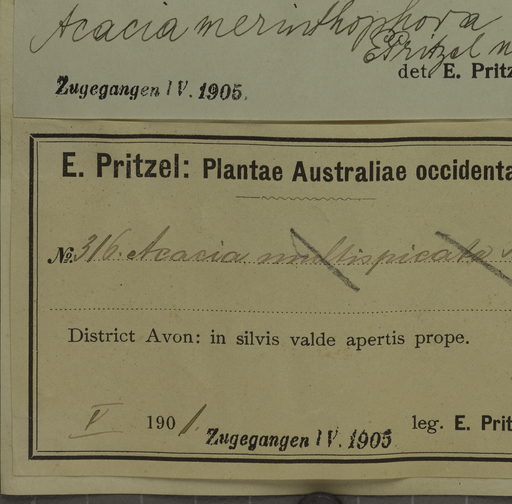 Acacia merinthophora
E. Pritzel n
det. E. Pritz
Zugegangen IV. 1905.
E. Pritzel: Plantae Australiae occidenta
No. 316. Acacia multispicata
District Avon: in silvis valde apertis prope.
V 1901. leg. E. Prit
Zugegangen IV. 1905